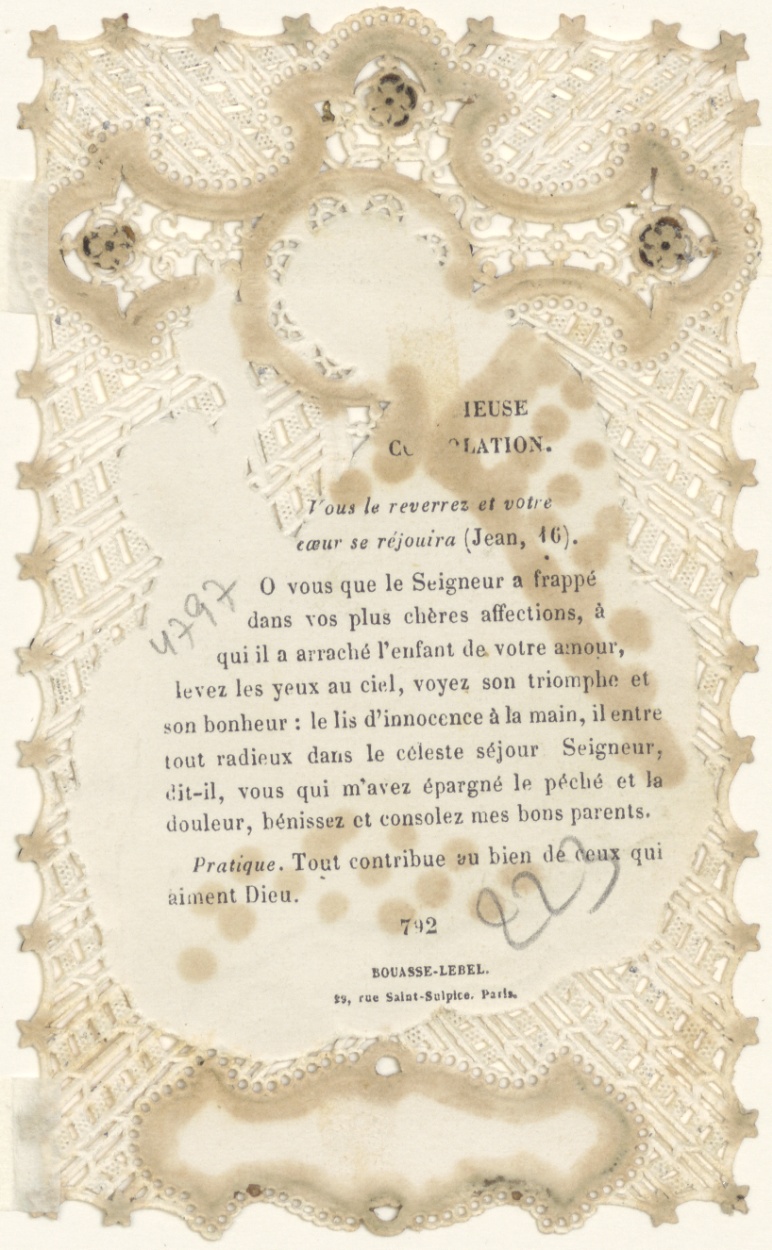 IEUSE
LATION.
Vous le reverrez et votre
cœur se réjouira (Jean, 16).
O vous que le Seigneur a frappé
dans vos plus chères affections, à
qui il a arraché l'enfant de votre amour,
levez les yeux au ciel, voyez son triomphe et
son bonheur : le lis d'innocence à la main, il entre
tout radieux dans le céleste séjour Seigneur,
dit-il, vous qui m'avez épargné le péché et la
douleur, bénissez et consolez mes bons parents.
Pratique. Tout contribue au bien de ceux qui
aiment Dieu.
792
BOUASSE-LEBEL.
29, rue Saint-Sulpice. Paris.
4797
223